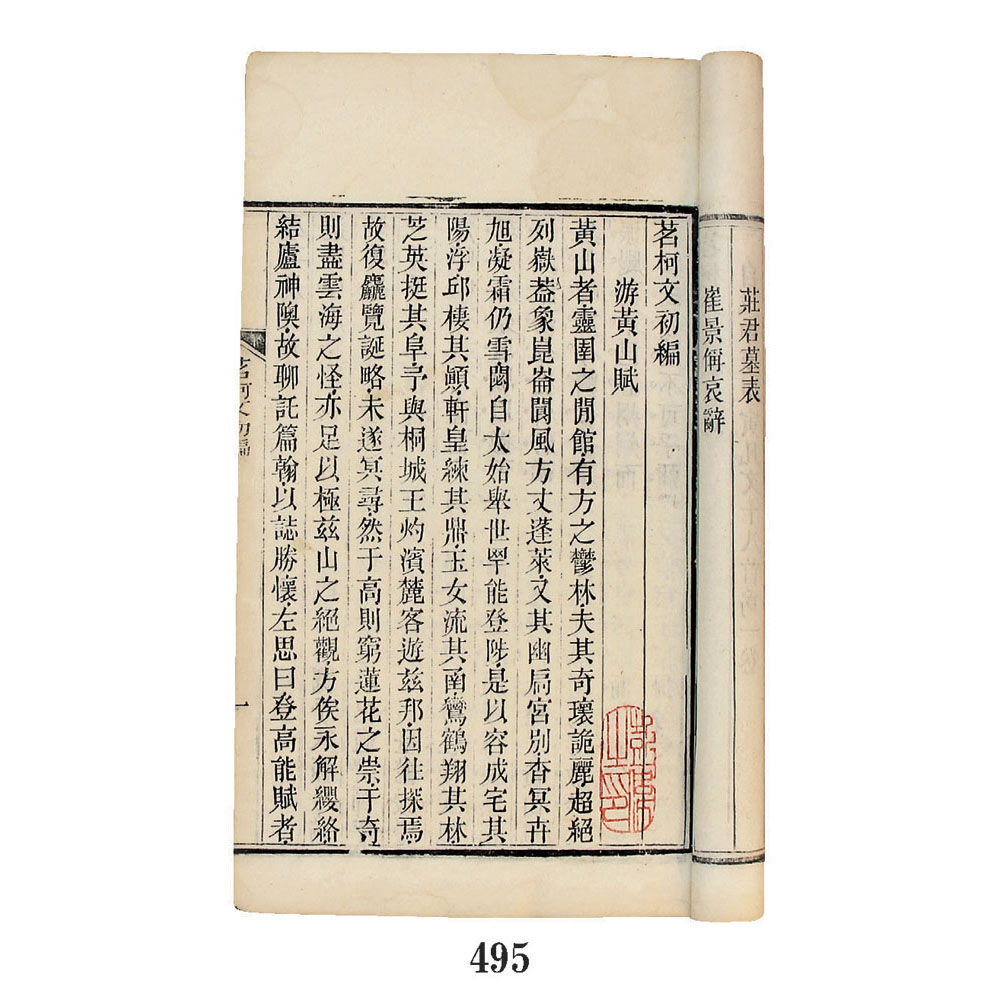 莊君墓表
崔景偁哀辭
茗柯文初編
游黃山賦
黃山者靈圉之閒館有方之鬱林夫其奇瓌詭麗超絕
列嶽葢象崑崙閬風方丈蓬萊又其幽扃宮別杳冥卉
旭凝霜仍雪閟自太始舉世罕能登陟是以容成宅其
陽浮邱棲其顚軒皇練其鼎玉女流其甬鸞鶴翔其林
芝英挺其阜予與桐城王灼濱麓客遊茲邦因往探焉
故復麤覽誕略未遂冥尋然于高則窮蓮花之崇于奇
則盡雲海之怪亦足以極茲山之絕觀方俟永解纓絡
結廬神隩故聊託篇翰以誌勝懷左思曰登高能賦者
茗柯文初編
一
495